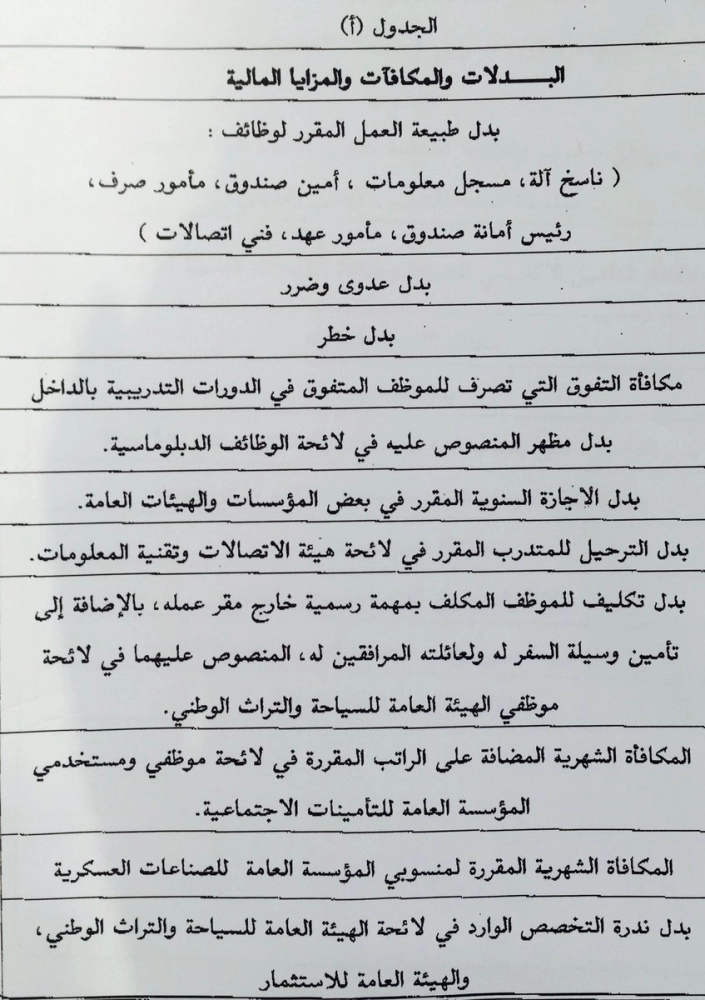 الجدول (أ)
البـــدلات والمكافآت والمزايا المالية
بدل طبيعة العمل المقرر لوظائف :
( ناسخ آلة، مسجل معلومات ، أمين صندوق، مأمور صرف،
رئيس أمانة صندوق، مأمور عهد، فني اتصالات )
بدل عدوى وضرر
بدل خطر
مكافأة التفوق التي تصرف للموظف المتفوق في الدورات التدريبية بالداخل
بدل مظهر المنصوص عليه في لائحة الوظائف الدبلوماسية.
بدل الاجازة السنوية المقرر في بعض المؤسسات والهيئات العامة.
بدل الترحيل للمتدرب المقرر في لائحة هيئة الاتصالات وتقنية المعلومات.
بدل تكليف للموظف المكلف بمهمة رسمية خارج مقر عمله، بالإضافة إلى
تأمين وسيلة السفر له ولعائلته المرافقين له، المنصوص عليهما في لائحة
موظفي الهيئة العامة للسياحة والتراث الوطني.
المكافأة الشهرية المضافة على الراتب المقررة في لائحة موظفي ومستخدمي
المؤسسة العامة للتأمينات الاجتماعية.
المكافاة الشهرية المقررة لمنسوبي المؤسسة العامة للصناعات العسكرية
بدل ندرة التخصص الوارد في لائحة الهيئة العامة للسياحة والتراث الوطني،
والهيئة العامة للاستثمار